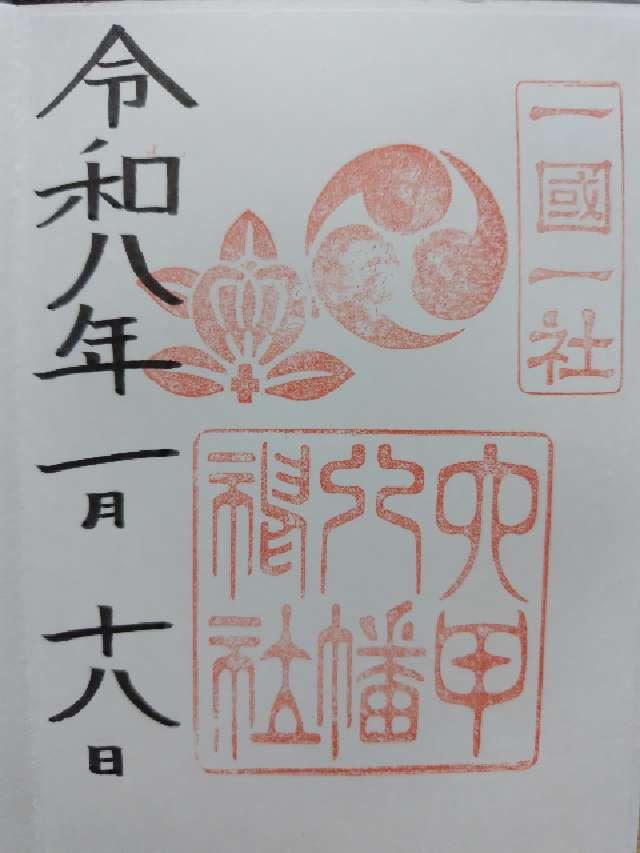 一國一社
六甲
八幡
神社
令和八年一月十八日